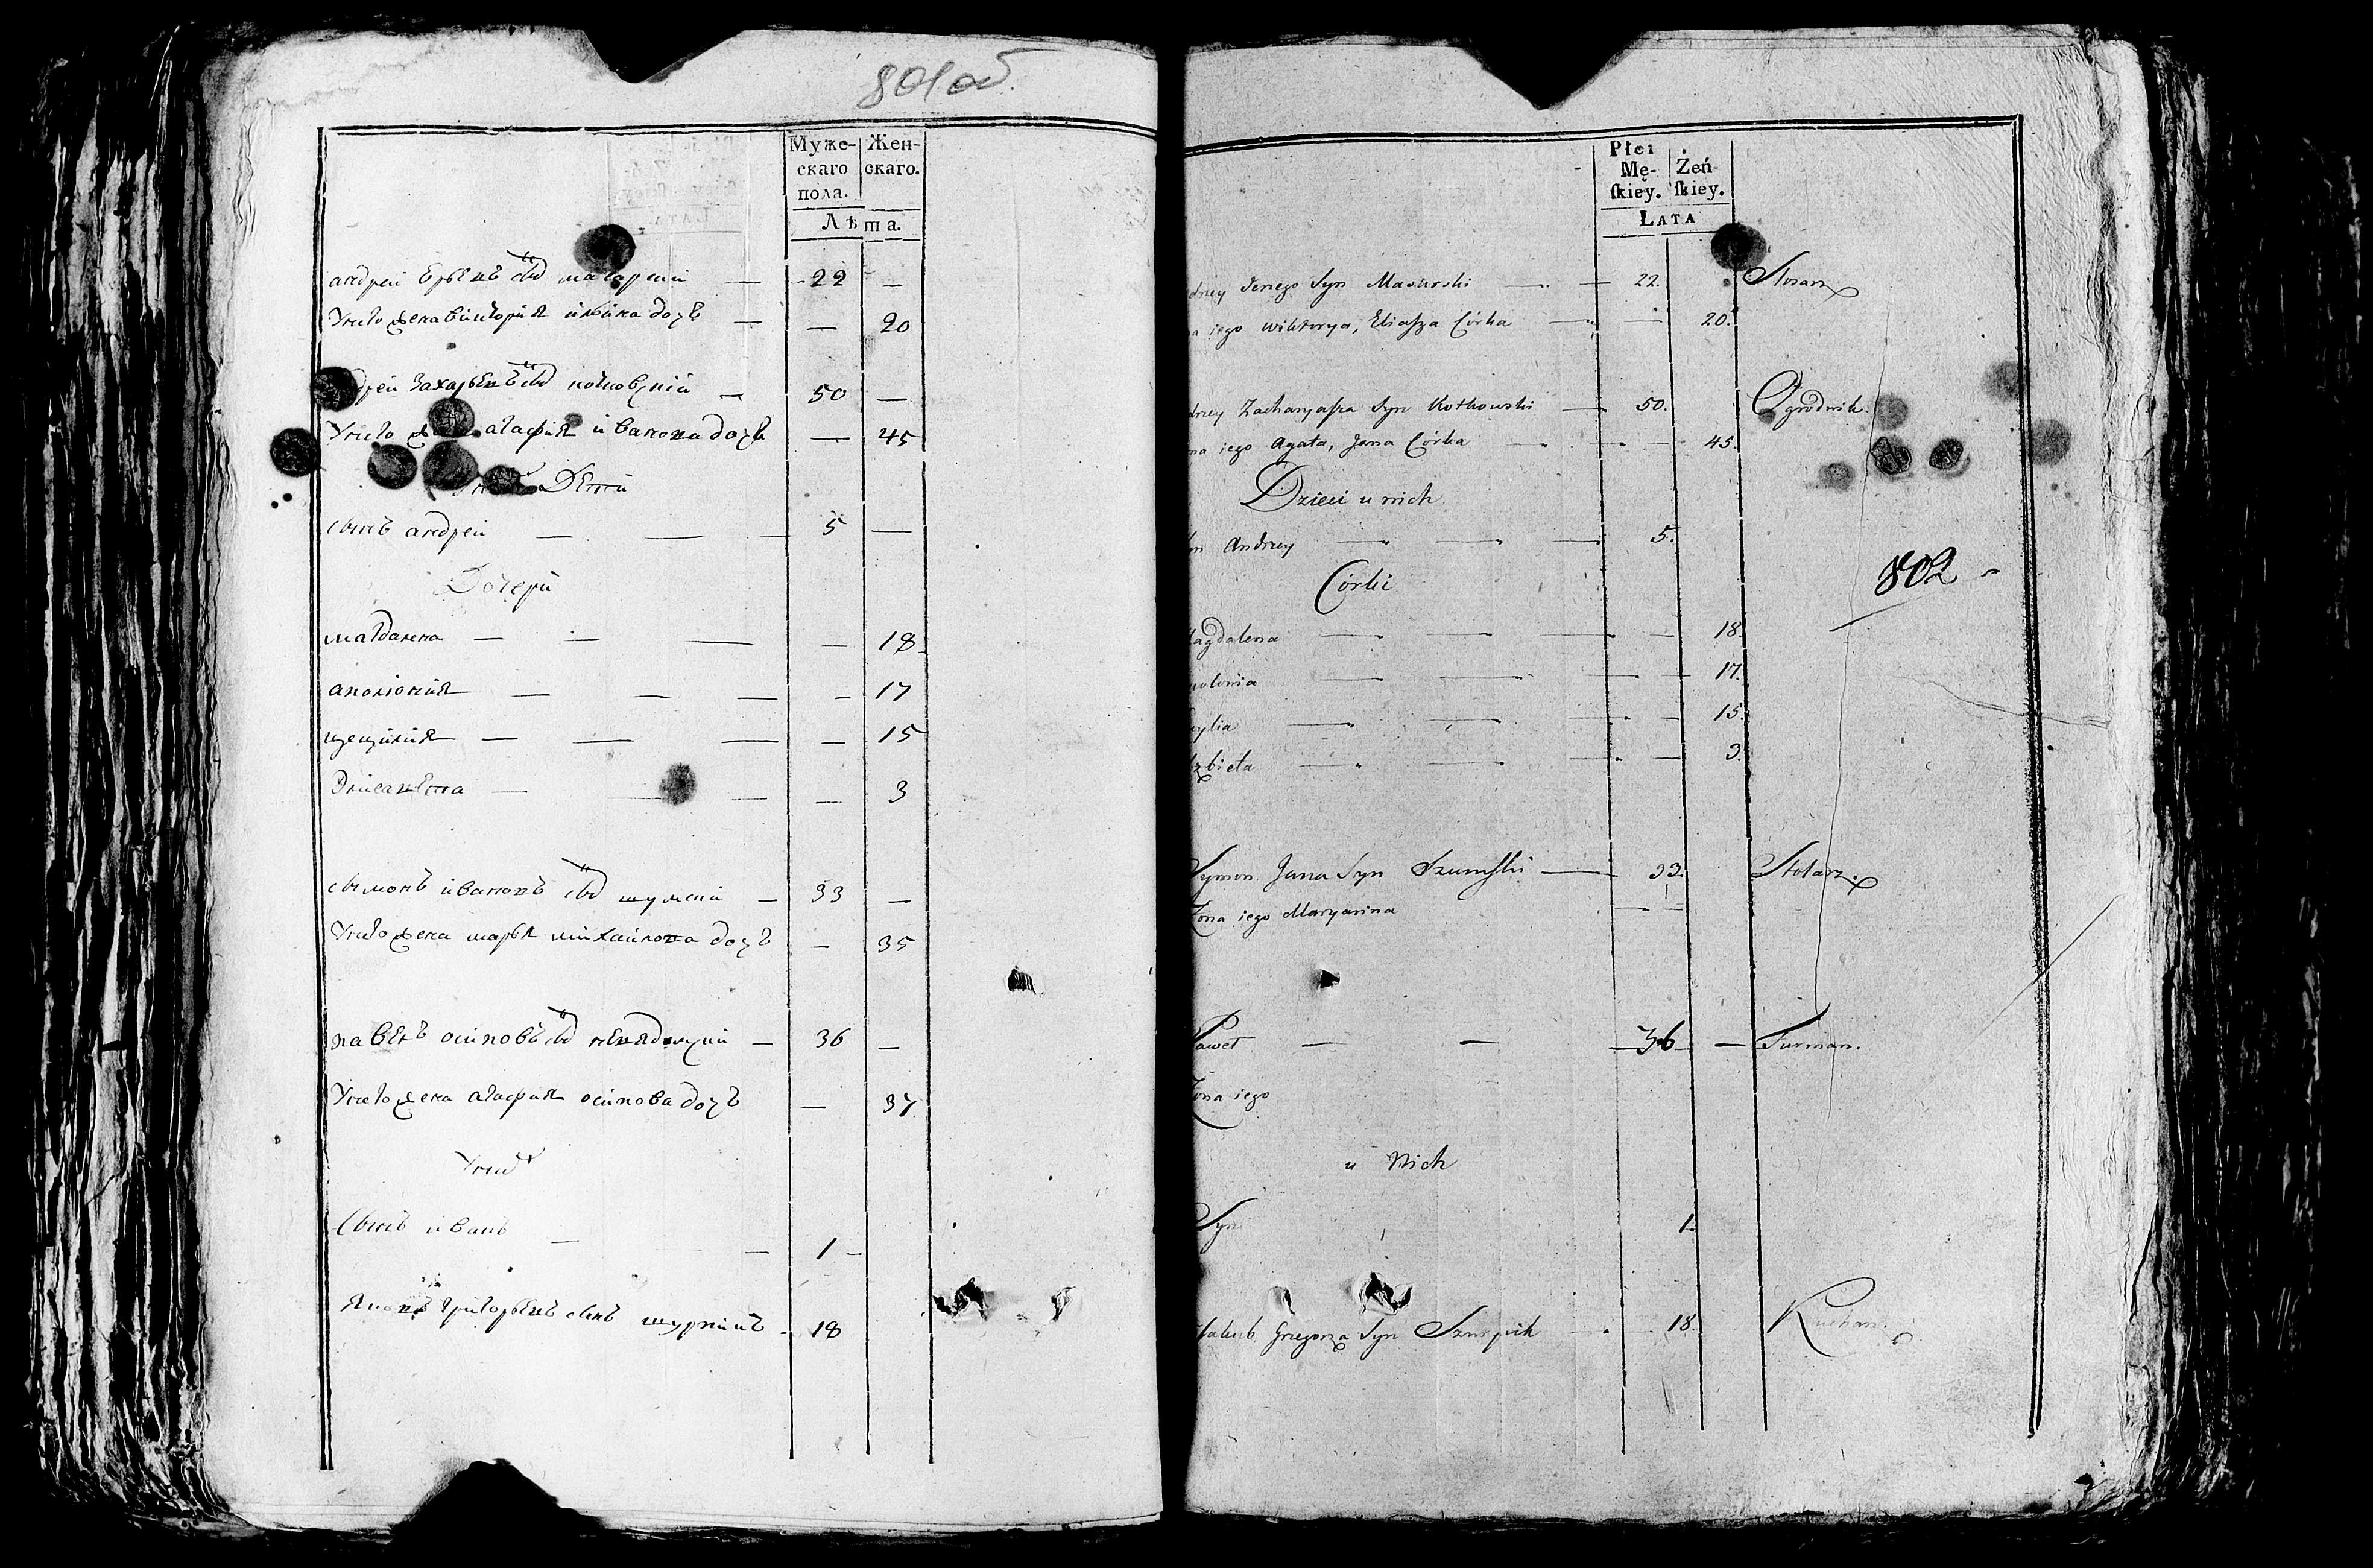 801 об.
Муже- Жен-
скаго скаго.
пола.
Лѣта.
андрей сынъ — 22 —
Унего жена викторія дочь — — 20
захарьевъ сынъ — 50 —
Унего агафия иванова дочь — 45
Дети
сынъ андрей — — — 5 —
Дочери
магдалена — — — — 18
аполіония — — — — 17
цецилия — — — — 15
Элисавета — — — — 3
сымонъ ивановъ сынъ шумский — 33 —
Унего жена марья михайлова дочь — 35
павелъ осиповъ сынъ — 36 —
Унего жена агафия осипова дочь — 37
Унихъ
Сынъ иванъ — — 1 —
Яковъ григорьевъ сынъ 18
Płci
Mę- Żeń-
ſkiey. ſkiey.
LATA
drzey Syn Mazurski — — 22.
na iego Wiktorya, Eliaſza Córka — — 20.
drzey Zacharyaſza Syn Kotkowski — 50. Ogrodnik.
na iego Agata, Jana Córka — — — 45.
Dzieci u nich
yn Andrzey — — — 5.
Córki
802
agdalena — — — — 18.
polonia — — — — 17.
cylia — — — — 15.
zbieta — — — — 3.
Symon Jana Syn Szumſki — 33. Stolarz.
Żona iego Maryanna — —
Paweł — — 36 — Furman.
Żona iego
u Nich
Syn 1.
Jakub Grzegorza Syn — — 18.